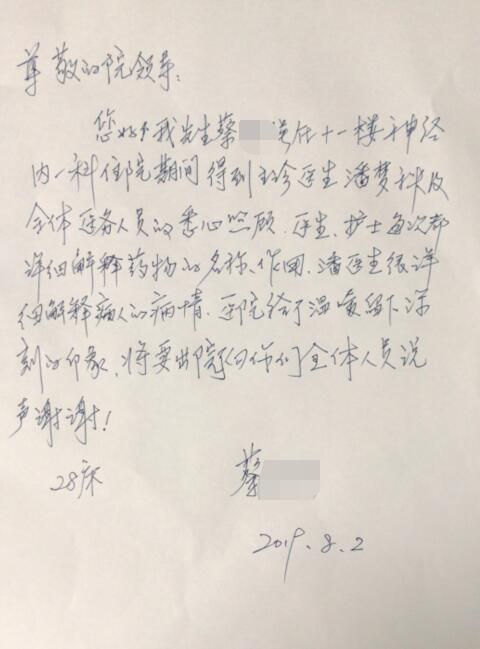 尊敬的院领导:
您好!我先生蔡 在十一楼神经
内一科住院期间得到主诊医生潘梦秋及
全体医务人员的悉心照顾.医生、护士每次都
详细解释药物的名称、作用.潘医生很详
细解释病人的病情.医院给了温暖留下深
刻的印象.将要出院向你们全体人员说
声谢谢!
28床 蔡
2019.8.2